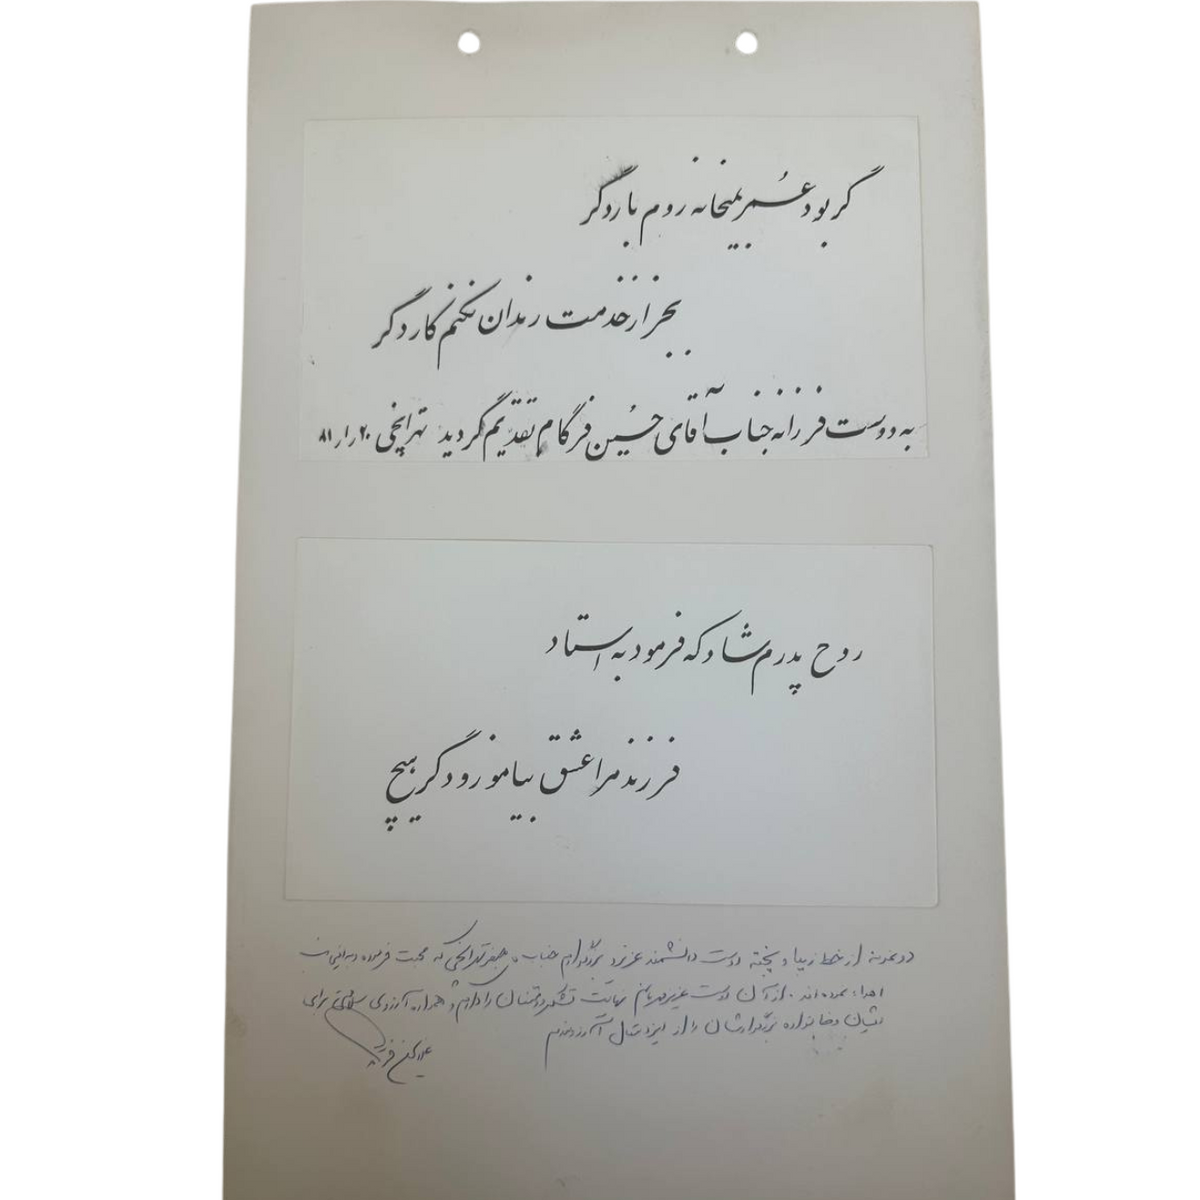 گر بود عمر بمیخانه روم بار دگر
بجز از خدمت رندان نکنم کار دگر
به دوست فرزانه جناب آقای حسین فرگام تقدیم گردید تهرانچی ۸۱٫۱٫۲۰
روح پدرم شاد که فرمود به استاد
فرزند مرا عشق بیاموز و دگر هیچ
دو نمونه از خط زیبا و پخته دوست دانشمند عزیز و بزرگوارم جناب تهرانچی که محبت فرموده و به اینجانب
اهداء نموده‌اند. از آن دوست عزیز مهربان نهایت تشکر و امتنان را دارم و همواره آرزوی سلامتی برای
ایشان و خانواده بزرگوارشان را از ایزد متعال آرزومندم